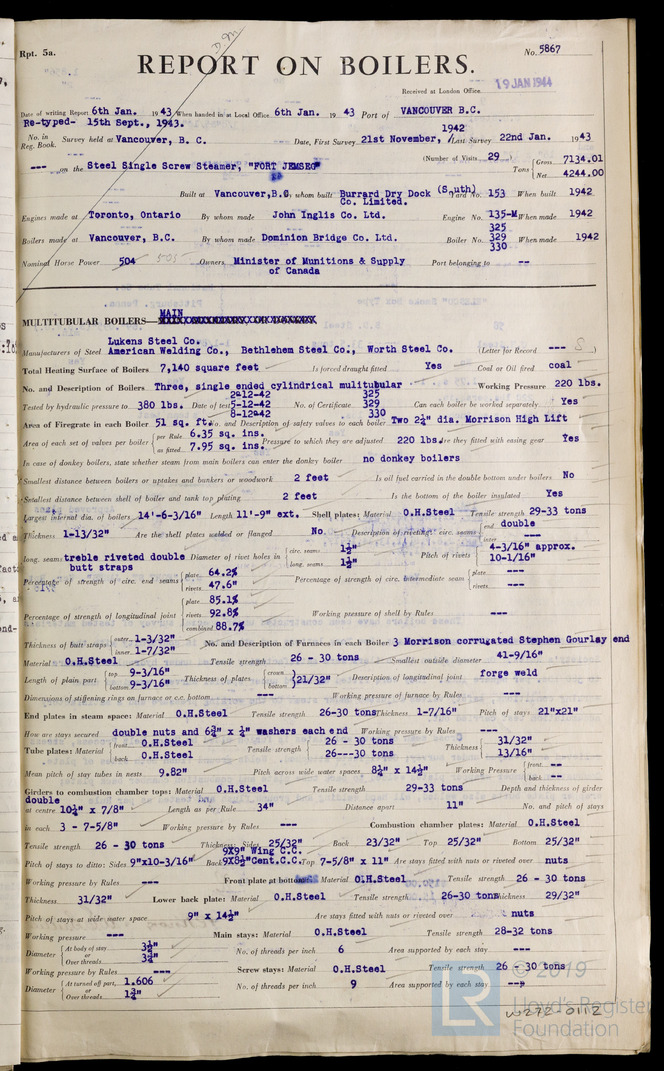 Rpt. 5a.
D.M
No. 5867
REPORT ON BOILERS.
Received at London Office 19 JAN 1944
Date of writing Report 6th Jan. 1943 When handed in at Local Office 6th Jan. 19 43 Port of VANCOUVER B.C.
Re-typed- 15th Sept., 1943.
No. in Reg. Book. Survey held at Vancouver, B. C. Date, First Survey 21st November, 1942 / Last Survey 22nd Jan. 1943
--- on the Steel Single Screw Steamer, "FORT JEMSEG" (Number of Visits 29 Tons Gross 7134.01 Net 4244.00
Built at Vancouver, B.C. By whom built Burrard Dry Dock (South) Co. Limited. Yard No. 153 When built 1942
Engines made at Toronto, Ontario By whom made John Inglis Co. Ltd. Engine No. 135-M When made 1942
Boilers made at Vancouver, B.C. By whom made Dominion Bridge Co. Ltd. Boiler No. 325 329 330 When made 1942
Nominal Horse Power 504 505 Owners Minister of Munitions & Supply of Canada Port belonging to --
MULTITUBULAR BOILERS— MAIN
Manufacturers of Steel Lukens Steel Co. American Welding Co., Bethlehem Steel Co., Worth Steel Co. (Letter for Record --- S )
Total Heating Surface of Boilers 7,140 square feet Is forced draught fitted Yes Coal or Oil fired coal
No. and Description of Boilers Three, single ended cylindrical mulitubular Working Pressure 220 lbs.
Tested by hydraulic pressure to 380 lbs. Date of test 2-12-42 5-12-42 8-12-42 No. of Certificate 325 329 330 Can each boiler be worked separately Yes
Area of Firegrate in each Boiler 51 sq. ft. No. and Description of safety valves to each boiler Two 2¼" dia. Morrison High Lift
Area of each set of valves per boiler per Rule 6.35 sq. ins. as fitted 7.95 sq. ins. Pressure to which they are adjusted 220 lbs. Are they fitted with easing gear Yes
In case of donkey boilers, state whether steam from main boilers can enter the donkey boiler no donkey boilers
Smallest distance between boilers or uptakes and bunkers or woodwork 2 feet Is oil fuel carried in the double bottom under boilers No
Smallest distance between shell of boiler and tank top plating 2 feet Is the bottom of the boiler insulated Yes
Largest internal dia. of boilers 14'-6-3/16" Length 11'-9" ext. Shell plates: Material O.H.Steel Tensile strength 29-33 tons
Thickness 1-13/32" Are the shell plates welded or flanged No. Description of riveting: circ. seams end double inter ---
long. seams treble riveted double butt straps Diameter of rivet holes in circ. seams 1½" long. seams 1½" Pitch of rivets 4-3/16" approx. 10-1/16"
Percentage of strength of circ. end seams plate 64.2% rivets 47.6% Percentage of strength of circ. intermediate seam plate --- rivets ---
Percentage of strength of longitudinal joint plate 85.1% rivets 92.8% combined 88.7% Working pressure of shell by Rules ---
Thickness of butt straps outer 1-3/32" inner 1-7/32" No. and Description of Furnaces in each Boiler 3 Morrison corrugated Stephen Gourlay end
Material O.H.Steel Tensile strength 26 - 30 tons Smallest outside diameter 41-9/16"
Length of plain part top 9-3/16" bottom 9-3/16" Thickness of plates crown bottom 21/32" Description of longitudinal joint forge weld
Dimensions of stiffening rings on furnace or c.c. bottom --- Working pressure of furnace by Rules ---
End plates in steam space: Material O.H.Steel Tensile strength 26-30 tons Thickness 1-7/16" Pitch of stays 21"x21"
How are stays secured double nuts and 6¾" x ½" washers each end Working pressure by Rules ---
Tube plates: Material front O.H.Steel back O.H.Steel Tensile strength 26 - 30 tons 26---30 tons Thickness 31/32" 13/16"
Mean pitch of stay tubes in nests 9.82" Pitch across wide water spaces 8½" x 14½" Working Pressure front -- back --
Girders to combustion chamber tops: Material O.H.Steel Tensile strength 29-33 tons Depth and thickness of girder
double
at centre 10½" x 7/8" Length as per Rule 34" Distance apart 11" No. and pitch of stays
in each 3 - 7-5/8" Working pressure by Rules --- Combustion chamber plates: Material O.H.Steel
Tensile strength 26 - 30 tons Thickness: Sides 25/32" Back 23/32" Top 25/32" Bottom 25/32"
Pitch of stays to ditto: Sides 9"x10-3/16" Back 9X9" Wing C.C. 9X8½"Cent.C.C. Top 7-5/8" x 11" Are stays fitted with nuts or riveted over nuts
Working pressure by Rules --- Front plate at bottom: Material O.H.Steel Tensile strength 26 - 30 tons
Thickness 31/32" Lower back plate: Material O.H.Steel Tensile strength 26-30 tons Thickness 29/32"
Pitch of stays at wide water space 9" x 14½" Are stays fitted with nuts or riveted over nuts
Working pressure --- Main stays: Material O.H.Steel Tensile strength 28-32 tons
Diameter At body of stay 3½" or Over threads 3¾" No. of threads per inch 6 Area supported by each stay ---
Working pressure by Rules --- Screw stays: Material O.H.Steel Tensile strength 26 - 30 tons
Diameter At turned off part, 1.606 or Over threads 1¾" No. of threads per inch 9 Area supported by each stay ---
© 2019
LR Lloyd's Register Foundation
W272-0112